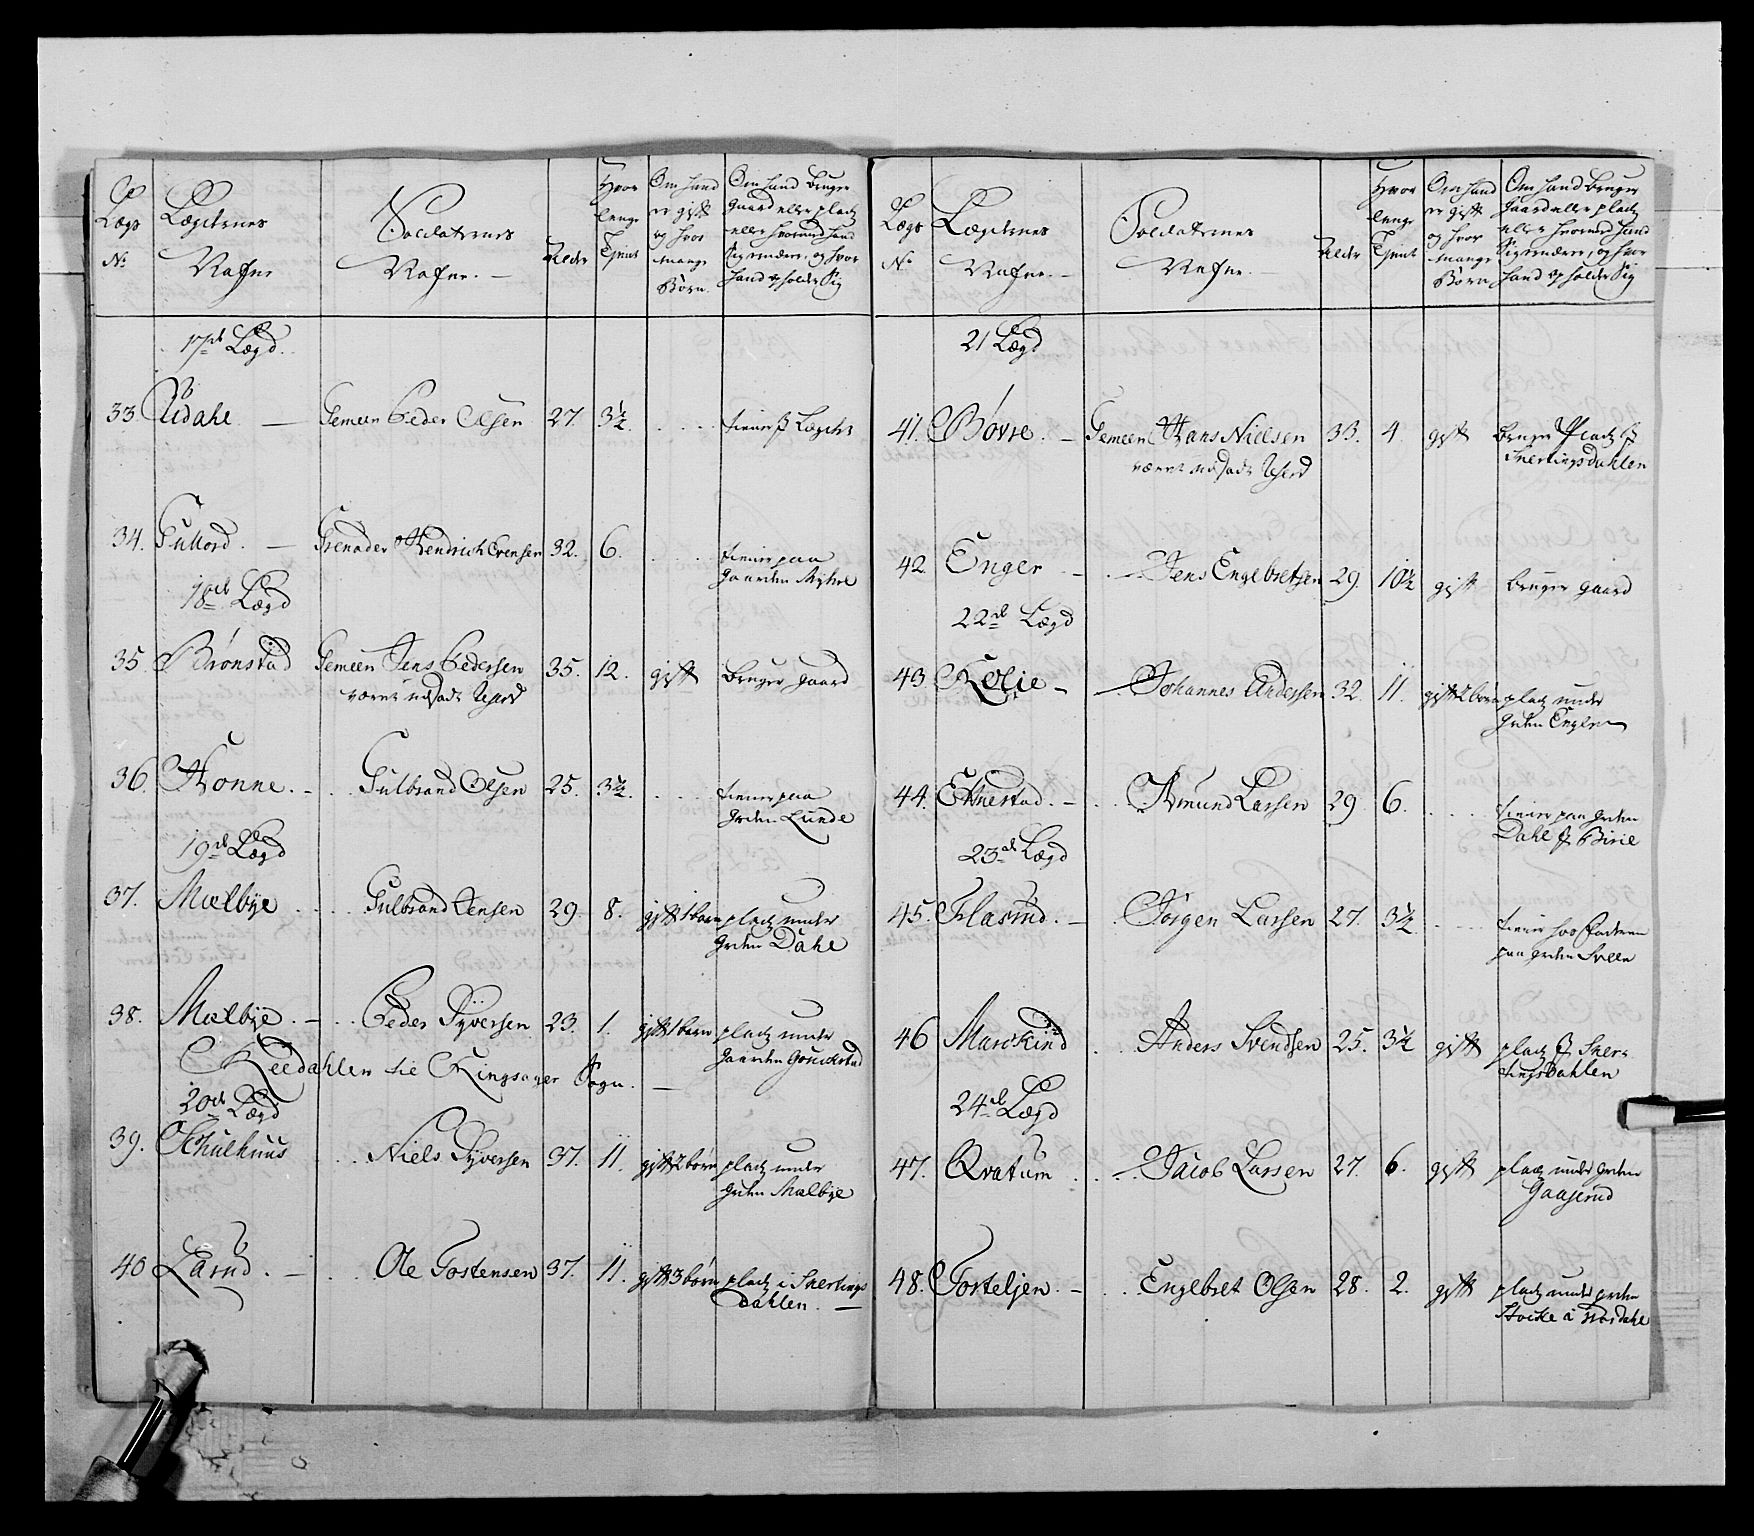 Lægs
No
Lægdernes
Nafne
Soldaternes
Nafne. —
Alder
Hvor
lenge
Tjent
Om hand
er gift
og hvor
mange
Børn.
Om hand bruger
gaard eller plads
eller hvormed hand
Sig ernærer, og hvor
hand opholder Sig
17de Lægd.
33. — Gemeen Peder Olsen 27. 3½ . . . . tiener Lægden
34. Grenader Hendrich Evensen 32. 6. . . . . tiener paa
gaarden Myhre
18de Lægd
35. Brønstad Gemeen Jens Pedersen 35. 12. gift bruger gaard
været udsadt Reserv
36. Honne. - . . Gulbrand Olsen 25. 3½. . . . . tiener paa
grden Lunde
19de Lægd
37. Mælbye . . . . Gulbrand Jensen 29. 8. gift 1 barn plads under
grden Dahl
38. Mælbye. - . . Peder Syversen 23. 1. gift 1 barn plads under
gaarden
Reedahlen til Ringsager Sogn. —
20de Lægd
39. Schulhuus . . . Niels Syversen 37. 11. gift 2 børn plads under
grden Mælbye
40 Larud. — . . . Ole Tostensen 37. 11. gift 3 børn plads i Snertings
dahlen. —
Lægs
No
Lægdernes
Nafne. -
Soldaternes
Nafne.
Alder
Hvor
lenge
Tjent
Om hand
er gift
og hvor
mange
Børn
Om hand bruger
gaard eller plads
eller hvormed hand
Sig ernærer, og hvor
hand opholder Sig
21 Lægd
41. Bøvre. - Gemeen Hans Nielsen 33. 4. gift bruger Plads i
Snertingsdahlen
været udsadt Reserv
42. Enger - . . - Jens Engebretsen 29. 10½ gift bruger gaard
22de Lægd
43. Kolie - - Johannes Andersen 32. 11. gift 2 børn plads under
grden Engeln
44. Eknestad. - . . Amund Larsen 29 6. . . . . tiener paa grden
Dahl i Birie
23de Lægd
45. Flarud. - . . Jørgen Larsen 27. 3½ . . . . tiener hos Faderen
paa grden
46 . . Anders Svendsen 25. 3½ gift plads i Sner-
tingsdahlen
24de Lægd
47. Qvatum . . . - Jacob Larsen 27. 6. gift plads under grden
Gaaserud
48. . . Engebret Olsen 28. 2. gift plads under grden